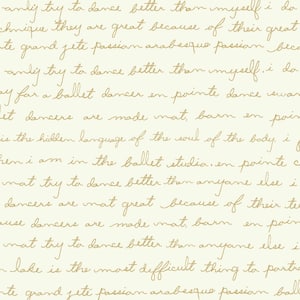 only try to dance better than myself. i do
chnique they are great because of their great
te grand jete passion arabesque passion beca
only try to dance better than myself. i do
ay for a ballet dancer en pointe dance
et dancers are made not born en poin
is the hidden language of the soul of the body i f
hen i am in the ballet studio. en pointe c
not try to dance better than anyone else i
dancers are not great because of their te
ause dancers are made not, born en poin
not try to dance better than anyone else i
n lake is the most difficult thing to portr
te grand jete passion arabesque passion ball